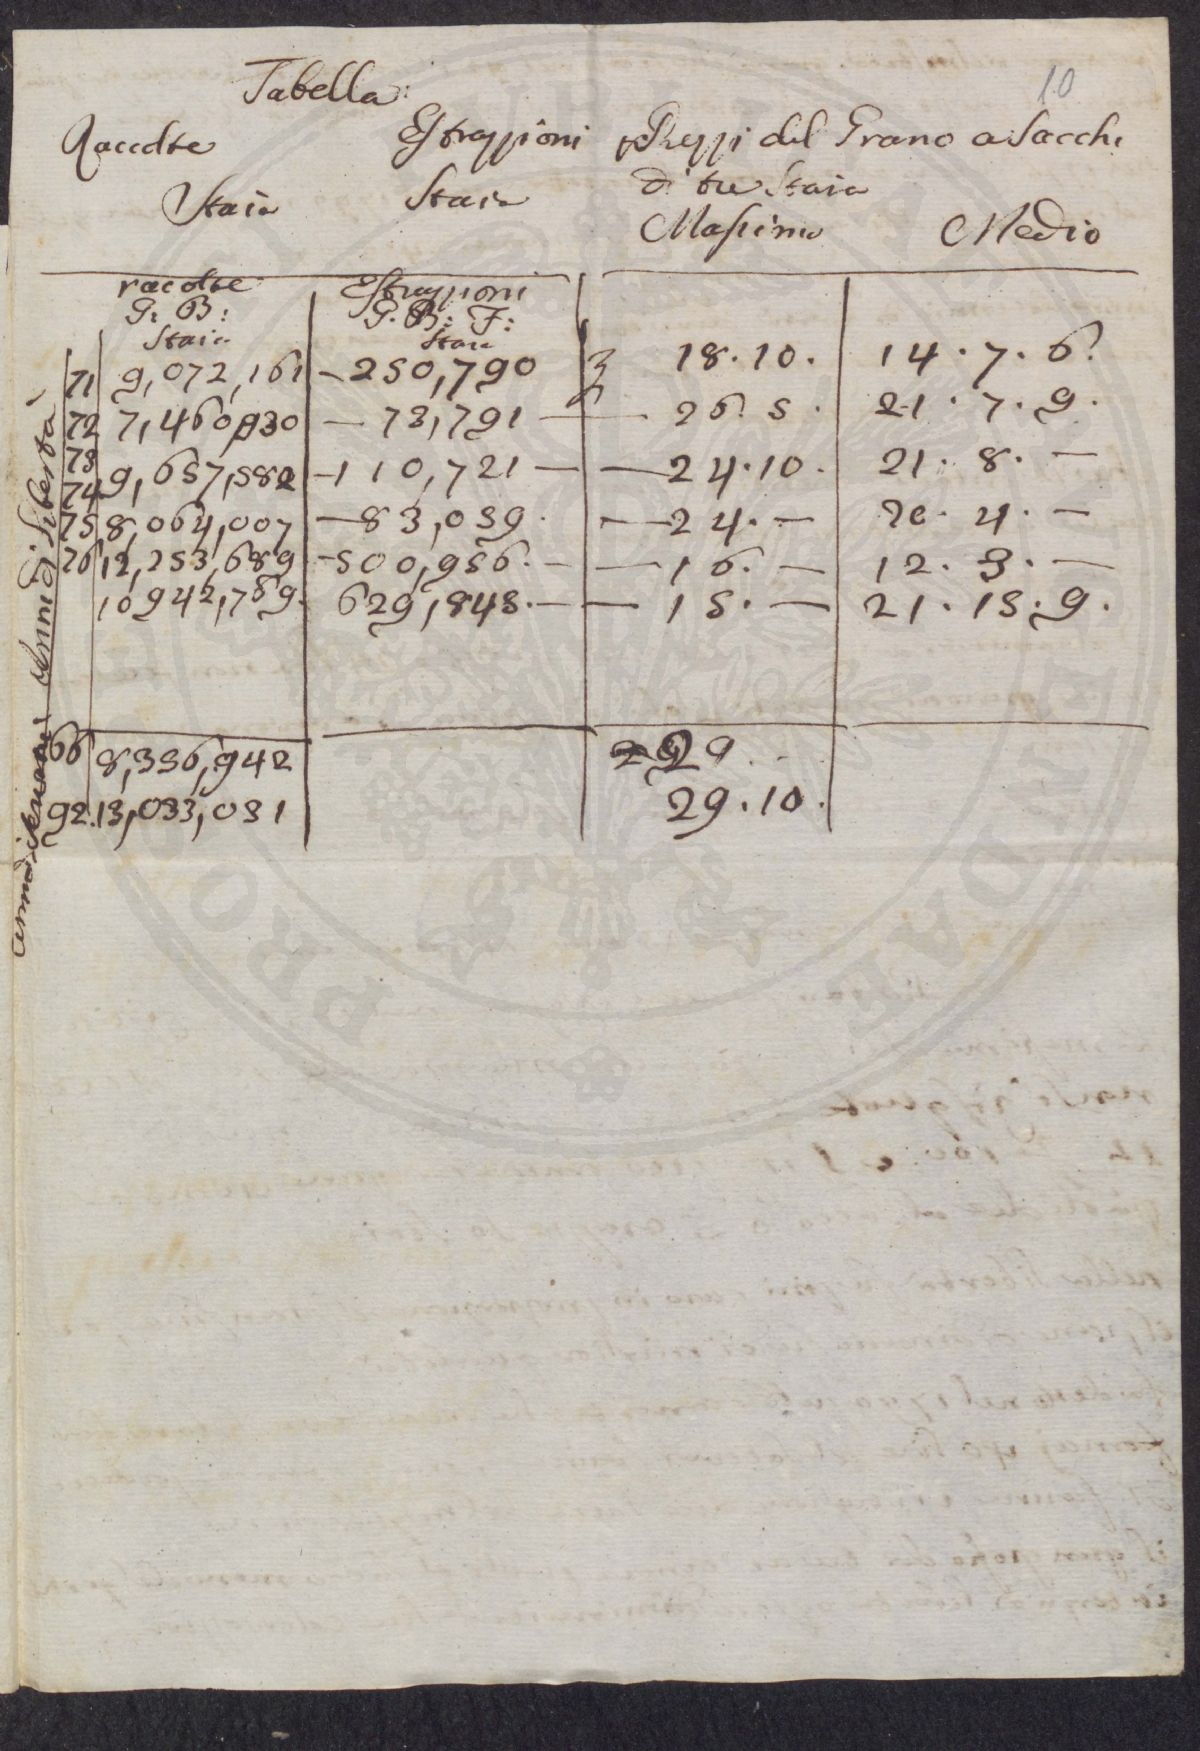 10
Tabella:
Raccolte Estrazzioni Prezzi del Grano a Sacchi
Staia Staia di tre Staia
Massimo Medio
racolte Estrazzioni
G: B: G. B: F:
Staia Staia
71 9,072,161 - 250,790 18.10. 14.7.6.
72 7,460,930 - 73,791 - 26.5. 21.7.9.
73 9,657,582 - 110,721 - 24.10. 21.8.-
74
75 8,064,007 - 83,039. - 24.- 20.4.-
76 12,253,689 - 500,956.- 16.- 12.3.-
10942,769. 629,848.- 15.- 21.15.9.
66 8,356,942 29
92. 13,033,031 29.10.
Anni di Libertà